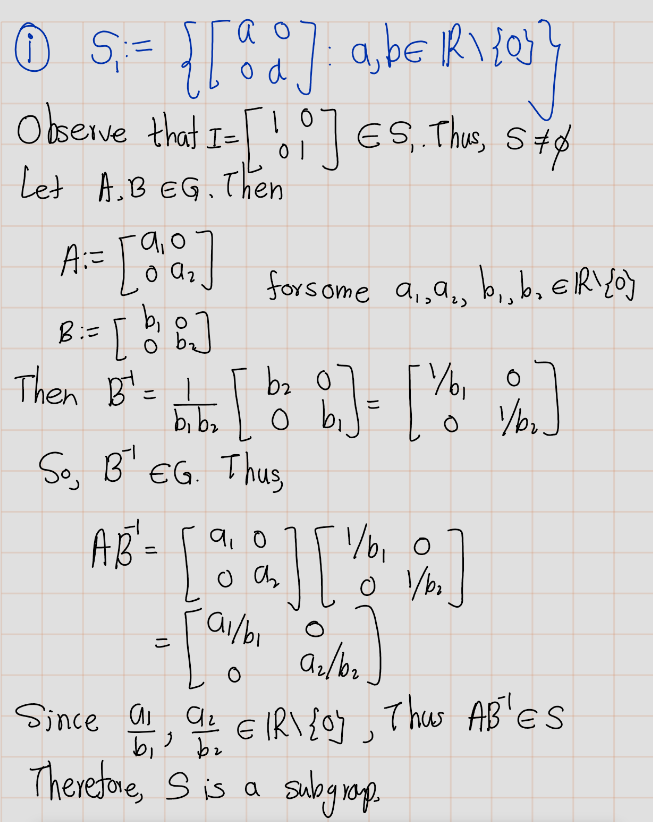 ① S₁:= { [a 0; 0 d] : a,b∈ ℝ\{0} }
Observe that I = [1 0; 0 1] ∈ S₁. Thus, S ≠ ∅
Let A,B ∈ G. Then
A:= [a₁ 0; 0 a₂]
for some a₁, a₂, b₁, b₂ ∈ ℝ\{0}
B:= [b₁ 0; 0 b₂]
Then B⁻¹ = 1/(b₁b₂) [b₂ 0; 0 b₁] = [1/b₁ 0; 0 1/b₂]
So, B⁻¹ ∈ G. Thus,
AB⁻¹ = [a₁ 0; 0 a₂] [1/b₁ 0; 0 1/b₂]
= [a₁/b₁ 0; 0 a₂/b₂]
Since a₁/b₁, a₂/b₂ ∈ ℝ\{0}, Thus AB⁻¹ ∈ S
Therefore, S is a subgrap.